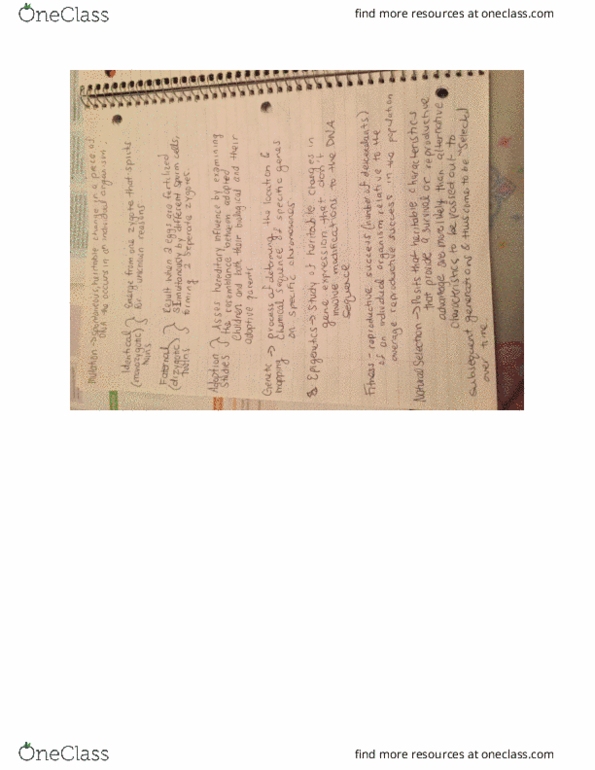 OneClass
find more resources at oneclass.com
Mutation → spontaneous, heritable change in a piece of
DNA the occurs in an individual organism.
Identical
(monozygotic)
twins
Emerge from one zygote that splits
for unknown reasons
Fraternal
(dizygotic)
twins
Result when 2 eggs are fertilized
simultaneously by different sperm cells,
forming 2 seperate zygotes
Adoption
studies
Asses hereditary influence by examining
the resemblance between adopted
children and both their biological and their
adoptive parents
Genetic
mapping
→ process of determing the location &
chemical sequence of specific genes
on specific chromosomes
Epigenetics → study of heritable changes in
gene expression that don't
involve modifications to the DNA
sequence
Fitness - reproductive success (number of descendants)
of an individual organism relative to the
average reproductive success in the population
Natural Selection → Posits that heritable characteristics
that provide a survival or reproductive
advantage are more likely than alternative
characteristics to be passed out to
subsequent generations & thus come to be "selected
over time.
OneClass
find more resources at oneclass.com